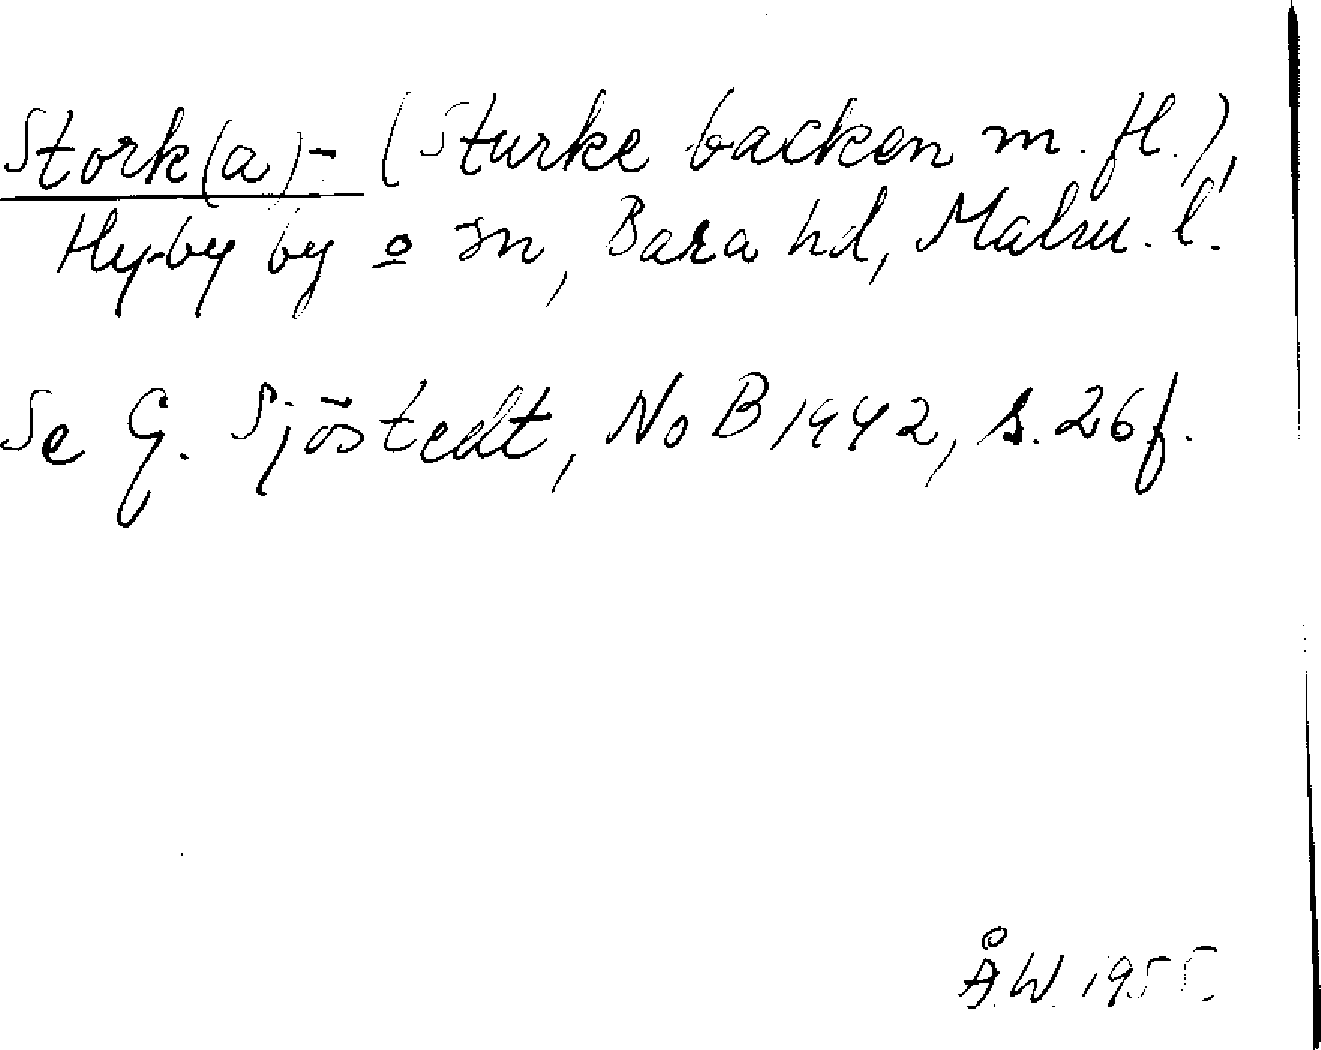 Stork(a)- (Sturke backen m. fl.),
Hyby by o sn, Bara hd, Malm. l.
Se G. Sjöstedt, NoB 1942, s. 26 f.
Å.W. 1955.